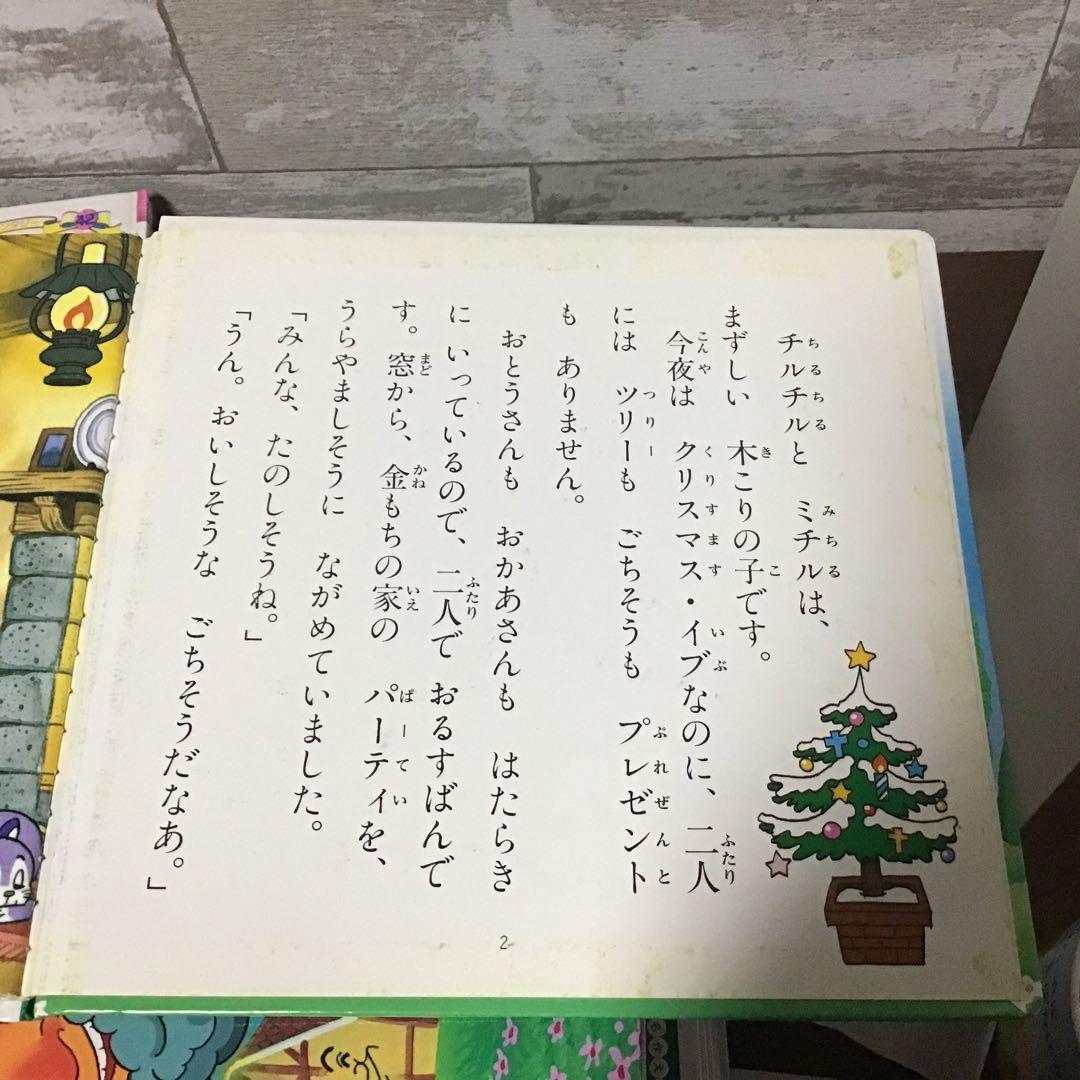 チルチルと ミチルは、
まずしい 木こりの子です。
今夜は クリスマス・イブなのに、二人
には ツリーも ごちそうも プレゼント
も ありません。
おとうさんも おかあさんも はたらき
に いっているので、二人で おるすばんで
す。窓から、金もちの家の パーティを、
うらやましそうに ながめていました。
「みんな、たのしそうね。」
「うん。おいしそうな ごちそうだなあ。」
2
42